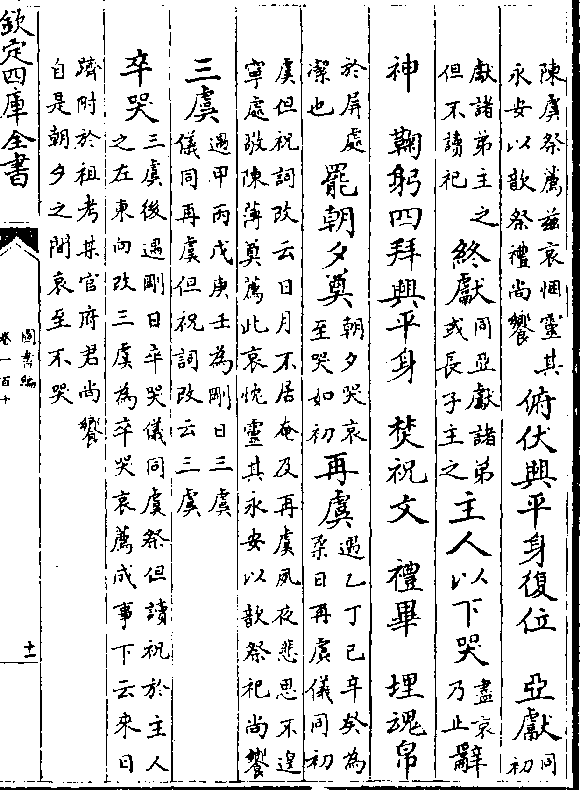 陳虞祭薦兹哀悃靈其永安以歆祭禮尚饗　俯伏興平身復位　亞獻同初
獻諸弟主之但不讀祀　終獻同亞獻諸弟或長子主之　主人以下哭盡哀乃止　辭
神　鞠躬四拜興平身　焚祝文　禮畢　埋魂帛
於屏處潔也　罷朝夕奠朝夕哭哀至哭如初　再虞遇乙丁己辛癸為柔日再虞儀同初
虞但祝詞改云日月不居奄及再虞夙夜悲思不遑寧處敬陳薄奠薦此哀忱靈其永安以歆祭祀尚饗
三虞遇甲丙戊庚壬為剛日三虞儀同再虞但祝詞改云三虞
卒哭三虞後遇剛日卒哭儀同虞祭但讀祝於主人之左東向改三虞為卒哭哀薦成事下云來日
躋附於祖考某官府君尚饗
自是朝夕之間哀至不哭
欽定四庫全書
圖書編
卷一百十
十一